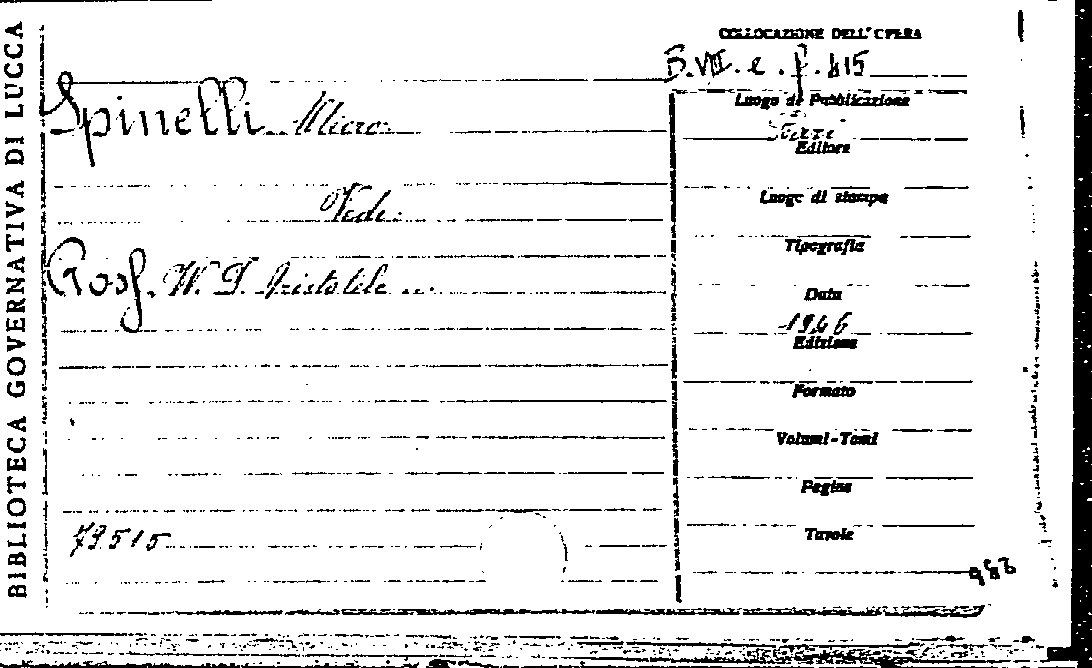 BIBLIOTECA GOVERNATIVA DI LUCCA
COLLOCAZIONE DELL'OPERA
B.VII. e. f. 415
Spinelli Micro
Luogo di Pubblicazione
Editore
Vedi:
Luogo di stampa
Tipografia
Ross. W. D. Aristotele ...
Data
1946
Edizione
Formato
Volumi-Tomi
Pagine
79515
Tavole